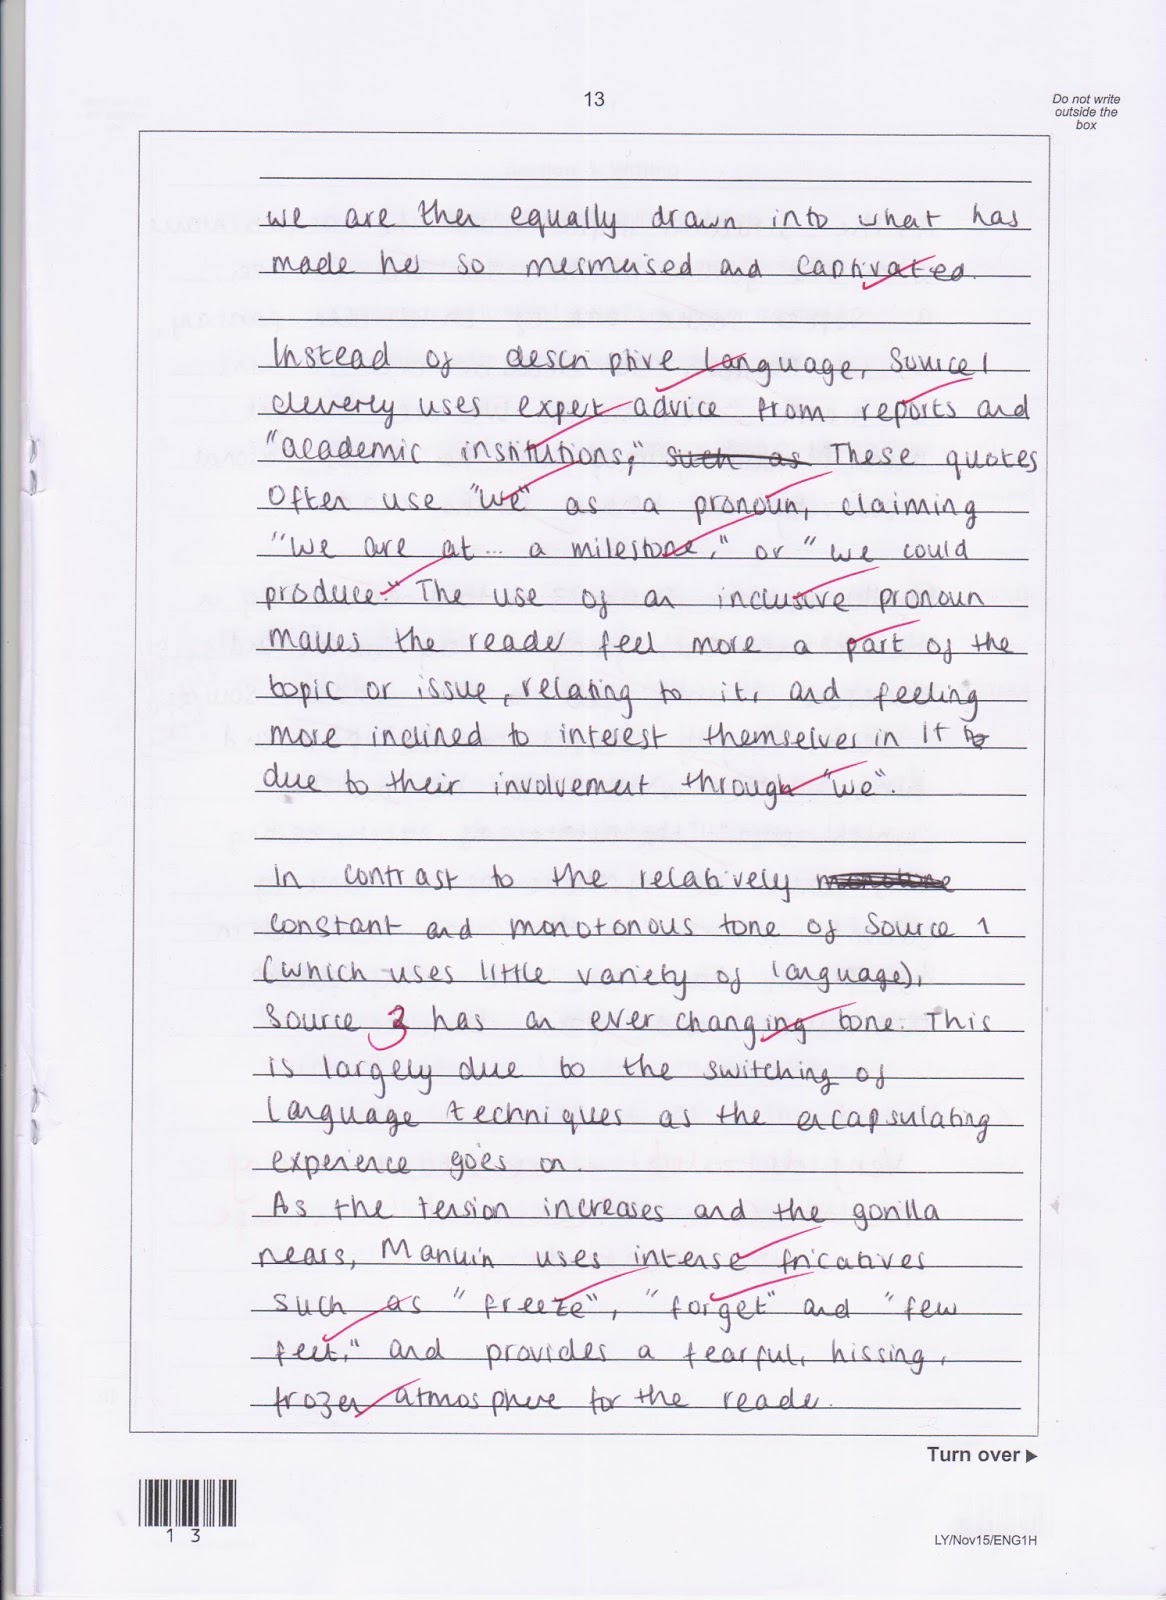 13
Do not write
outside the
box
we are then equally drawn into what has
made her so mesmerised and captivated.
Instead of descriptive language, Source 1
cleverly uses expert advice from reports and
"academic institutions;" such as These quotes
often use "we" as a pronoun, claiming
"we are at... a milestone," or "we could
produce." The use of an inclusive pronoun
makes the reader feel more a part of the
topic or issue, relating to it, and feeling
more inclined to interest themselves in it
due to their involvement through "we".
In contrast to the relatively monotone
constant and monotonous tone of Source 1
(which uses little variety of language),
Source 3 has an ever changing tone. This
is largely due to the switching of
language techniques as the encapsulating
experience goes on.
As the tension increases and the gorilla
nears, Manuin uses intense fricatives
such as "freeze", "forget" and "few
feet," and provides a fearful, hissing,
frozen atmosphere for the reader.
Turn over
1 3
LY/Nov15/ENG1H